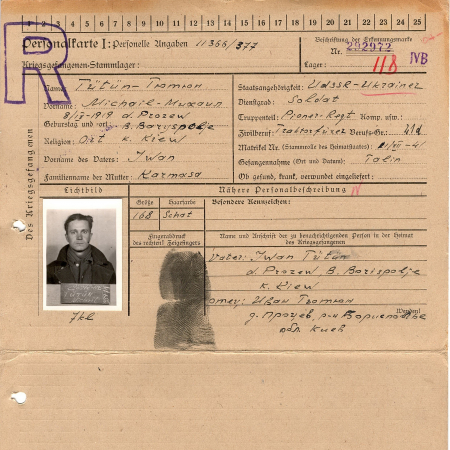 1 2 3 4 5 6 7 8 9 10 11 12 13 14 15 16 17 18 19 20 21 22 23 24 25
R
Personalkarte I: Personelle Angaben 11366/377
Beschriftung der Erkennungsmarke
Nr. 292972
Kriegsgefangenen-Stammlager:
Lager: IIB IVB
Des Kriegsgefangenen
Name: Tütün - Тютюн
Vorname: Michail - Михаил
Geburtstag und -ort: 8/IX-1919 d. Prozew
B. Borispolje
Religion: Ort k. Kiew
Vorname des Vaters: Iwan
Familienname der Mutter: Karmasa
Staatsangehörigkeit: UdSSR-Ukrainer
Dienstgrad: Soldat
Truppenteil: Pioner-Regt Komp. usw.:
Zivilberuf: Traktorfürer Berufs-Gr.: 41d
Matrikel Nr. (Stammrolle des Heimatstaates): VIII-41
Gefangennahme (Ort und Datum): Talin
Ob gesund, krank, verwundet eingeliefert:
Lichtbild
Nähere Personalbeschreibung
Größe Haarfarbe Besondere Kennzeichen:
168
Fingerabdruck
des rechten! Zeigefingers
Name und Anschrift der zu benachrichtigenden Person in der Heimat
des Kriegsgefangenen
Vater: Iwan Tütün
d. Prozew B. Borispolje
k. Kiew
отец: Иван Тютюн
д. Процев, р-н Борисполье
обл. Киев
Wenden!